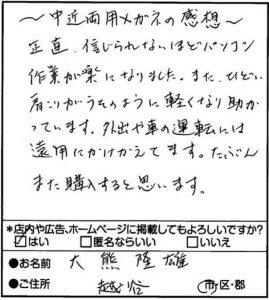 ～中近両用メガネの感想～
正直、信じられないほどパソコン
作業が楽になりました。また、ひどい
肩こりがうそのように軽くなり助か
っています。外出や車の運転には
遠用にかけかえてます。たぶん
また購入すると思います。
*店内や広告、ホームページに掲載してもよろしいですか?
☑はい □匿名ならいい □いいえ
●お名前 大熊隆雄
●ご住所 越谷 市・区・郡